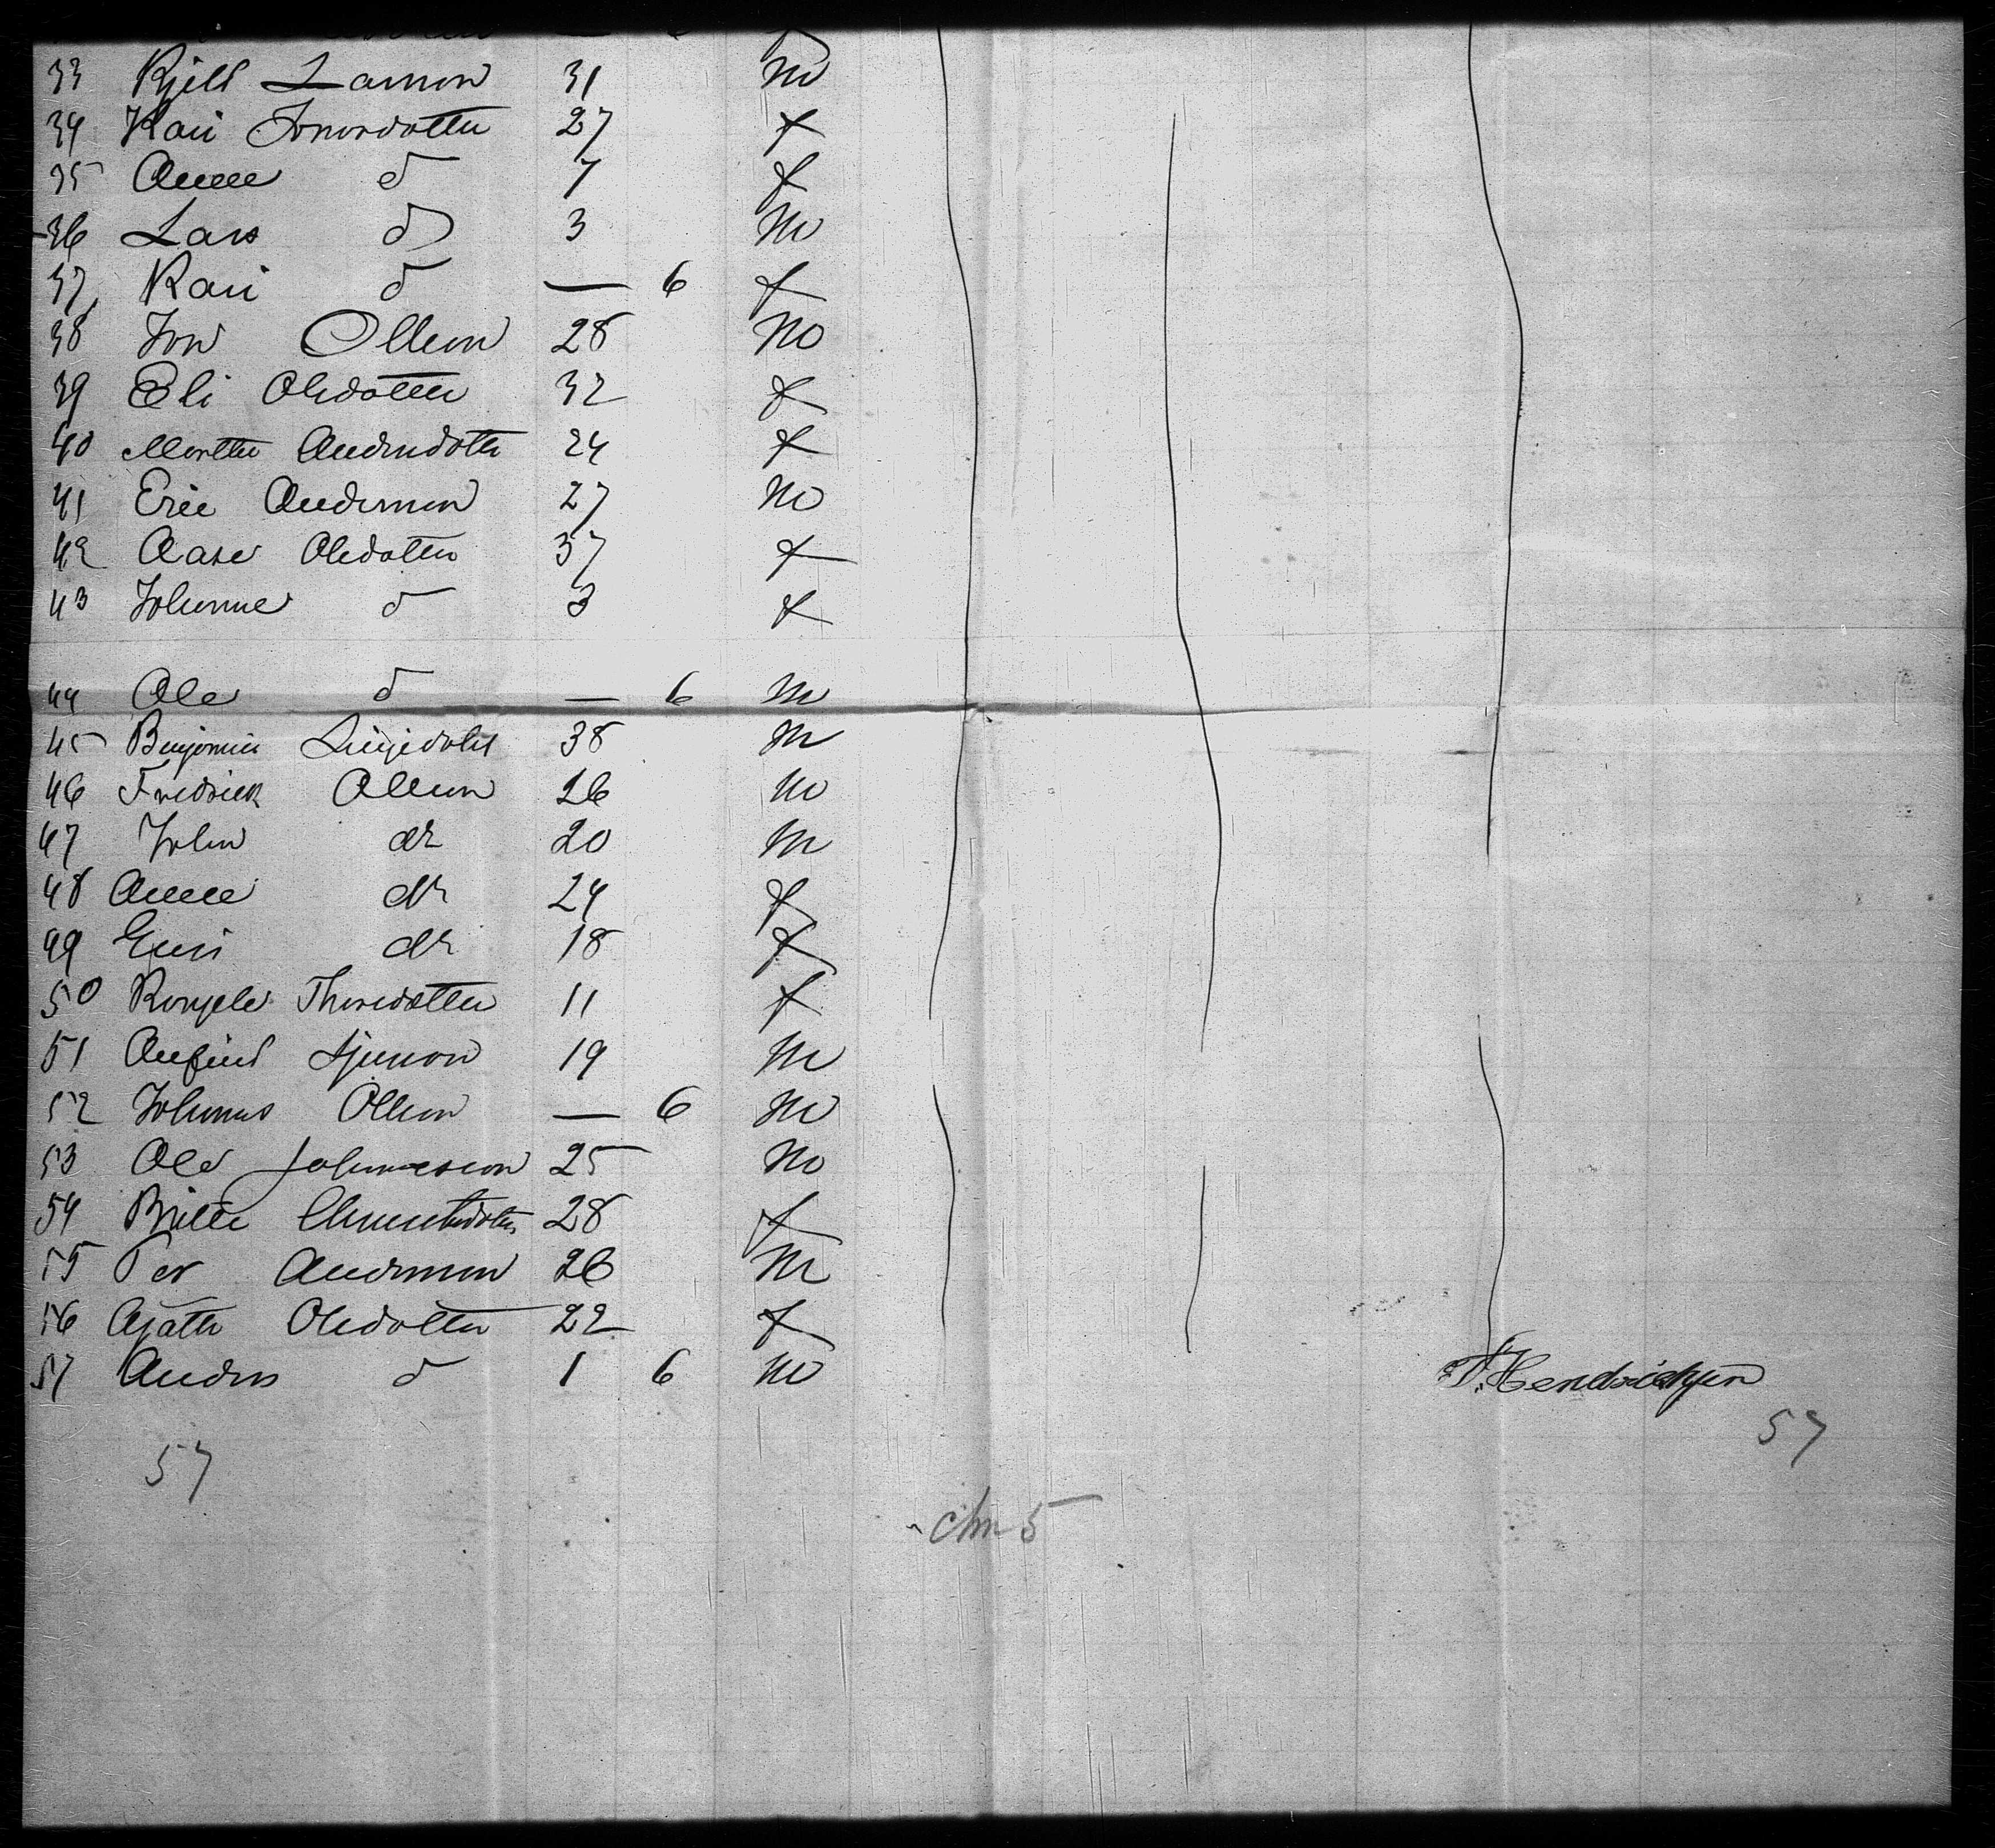 33 Kjeld Larson 31 m
34 Kari Iversdotter 27 f
35 Anne d 7 f
36 Lars d 3 m
37 Kari d — 6 f
38 Jon Olleson 28 m
39 Eli Olesdotter 32 f
40 Marthe Andersdotter 24 f
41 Eric Anderson 27 m
42 Aase Olesdotter 37 f
43 Johanne d 3 f
44 Ole d — 6 m
45 Benjamin 38 m
46 Fredrick Olleson 26 m
47 John do 20 m
48 Anne do 24 f
49 Guri do 18 f
50 Thoresdotter 11 f
51 Anfind 19 m
52 Johannes Olleson — 6 m
53 Ole Johanneson 25 m
54 Britte 28 f
55 Per Anderson 26 m
56 Agathe Olesdotter 22 f
57 Anders d 1 6 m T. Hendrichsen
57
57
chn 5